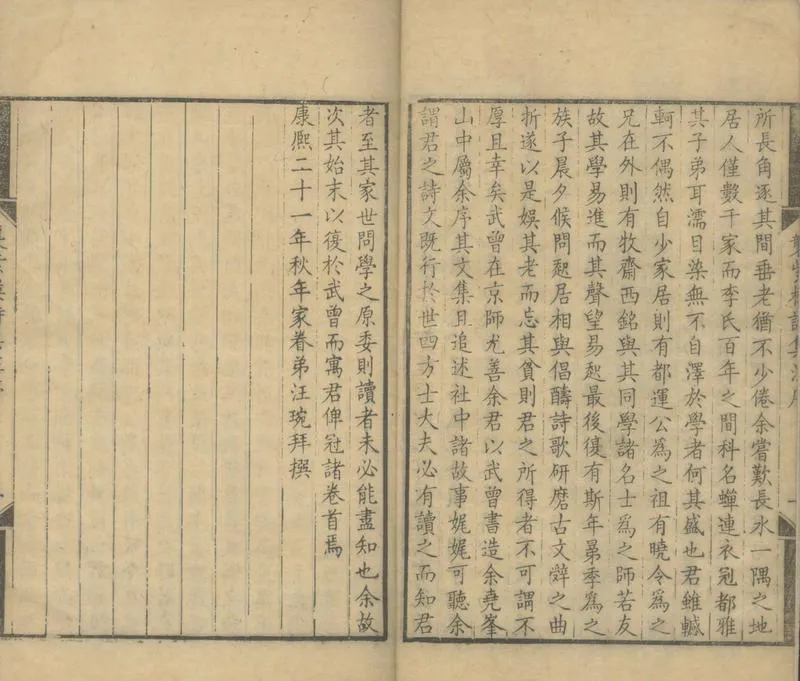 所長角逐其間垂老猶不少倦余嘗歎長水一隅之地
居人僅數千家而李氏百年之間科名蟬連衣冠都雅
其子弟耳濡目染無不自澤於學者何其盛也君雖轗
軻不偶然自少家居則有都運公為之祖有曉令為之
兄在外則有牧齋西銘與其同學諸名士為之師若友
故其學易進而其聲望易起最後復有斯年弟季為之
族子晨夕候問起居相與倡醻詩歌研磨古文辝之曲
折遂以是娛其老而忘其貧則君之所得者不可謂不
厚且幸矣武曾在京師尤善余君以武曾書造余堯峯
山中屬余序其文集且追述社中諸故事娓娓可聽余
謂君之詩文既行於世四方士大夫必有讀之而知君
者至其家世問學之原委則讀者未必能盡知也余故
次其始末以復於武曾而寓君俾冠諸卷首焉
康熙二十一年秋年家眷弟汪琬拜撰